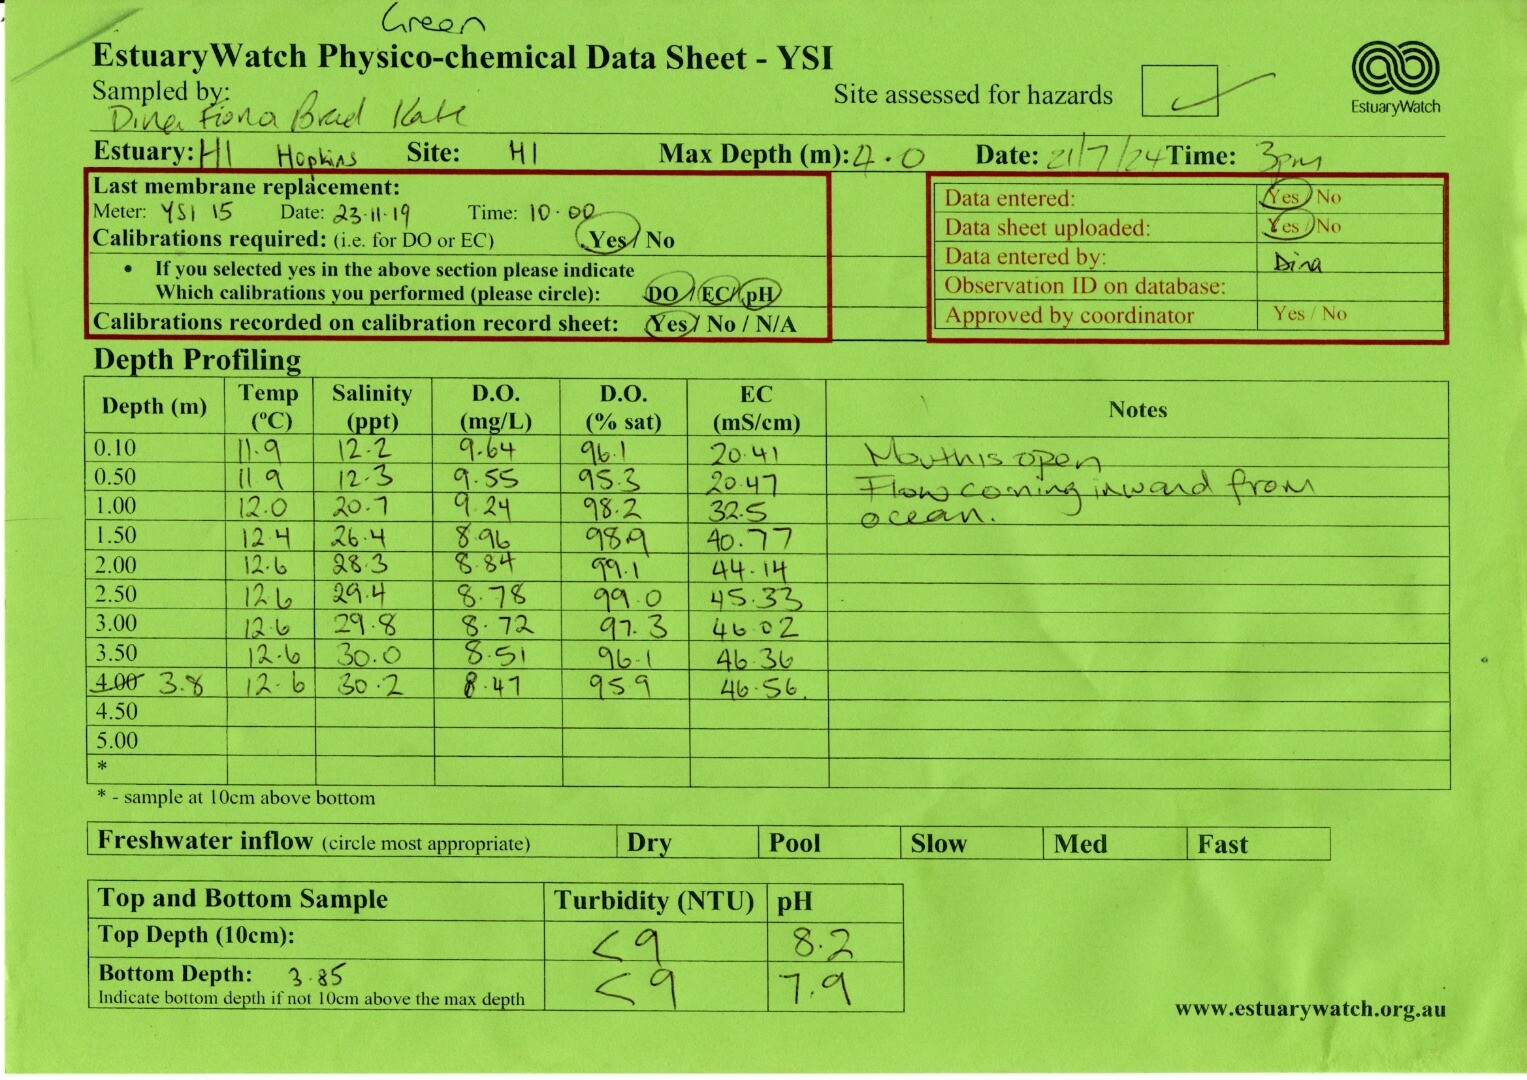 Green
EstuaryWatch Physico-chemical Data Sheet - YSI
Sampled by: Site assessed for hazards
EstuaryWatch
Dina Fiona Brad Kate
Estuary: H1 Hopkins Site: H1 Max Depth (m): 4.0 Date: 21/7/24 Time: 3pm
Last membrane replacement:
Meter: YSI 15 Date: 23-11-19 Time: 10-00
Calibrations required: (i.e. for DO or EC) Yes / No
• If you selected yes in the above section please indicate
Which calibrations you performed (please circle): DO / EC / pH
Calibrations recorded on calibration record sheet: Yes / No / N/A
Data entered: Yes / No
Data sheet uploaded: Yes / No
Data entered by: Dina
Observation ID on database:
Approved by coordinator Yes / No
Depth Profiling
Depth (m) Temp (ºC) Salinity (ppt) D.O. (mg/L) D.O. (% sat) EC (mS/cm) Notes
0.10 11.9 12.2 9.64 96.1 20.41 Mouth is open
0.50 11.9 12.3 9.55 95.3 20.47 Flow coming inward from
1.00 12.0 20.7 9.24 98.2 32.5 ocean.
1.50 12.4 26.4 8.96 98.9 40.77
2.00 12.6 28.3 8.84 99.1 44.14
2.50 12.6 29.4 8.78 99.0 45.33
3.00 12.6 29.8 8.72 97.3 46.02
3.50 12.6 30.0 8.51 96.1 46.36
4.00 3.8 12.6 30.2 8.47 95.9 46.56
4.50
5.00
*
* - sample at 10cm above bottom
Freshwater inflow (circle most appropriate) Dry Pool Slow Med Fast
Top and Bottom Sample Turbidity (NTU) pH
Top Depth (10cm): <9 8.2
Bottom Depth: 3.85 <9 7.9
Indicate bottom depth if not 10cm above the max depth
www.estuarywatch.org.au